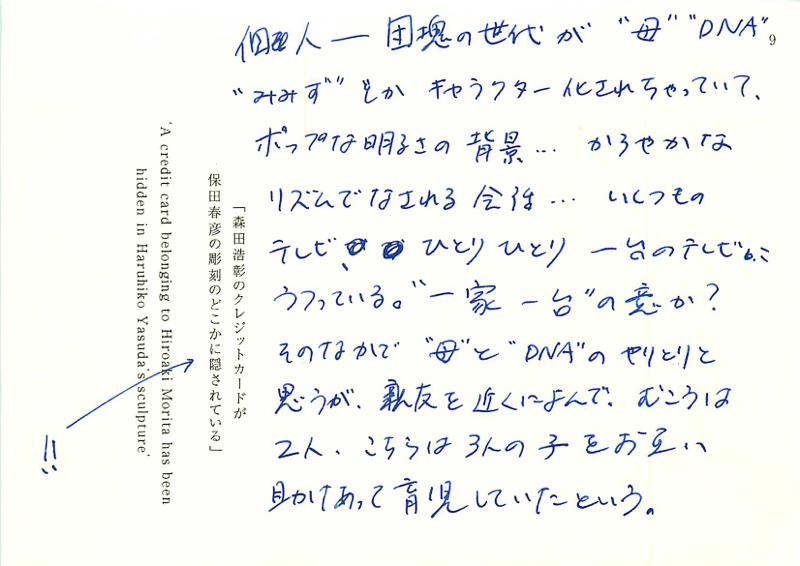 個人 — 団塊の世代が "母" "DNA"
"みみず" とか キャラクター化されちゃっていて、
ポップな明るさの 背景… かろやかな
リズムでなされる 会話… いくつもの
テレビ、 ひとり ひとり 一台のテレビに
うつっている。"一家 一台"の意か?
そのなかで "母"と "DNA"の やりとりと
思うが、親友を 近くによんで、むこうは
2人、こちらは 3人の 子を お互い
助けあって 育児していたという。
9
「森田浩彰のクレジットカードが
保田春彦の彫刻のどこかに隠されている」
'A credit card belonging to Hiroaki Morita has been
hidden in Haruhiko Yasuda's sculpture'
!!